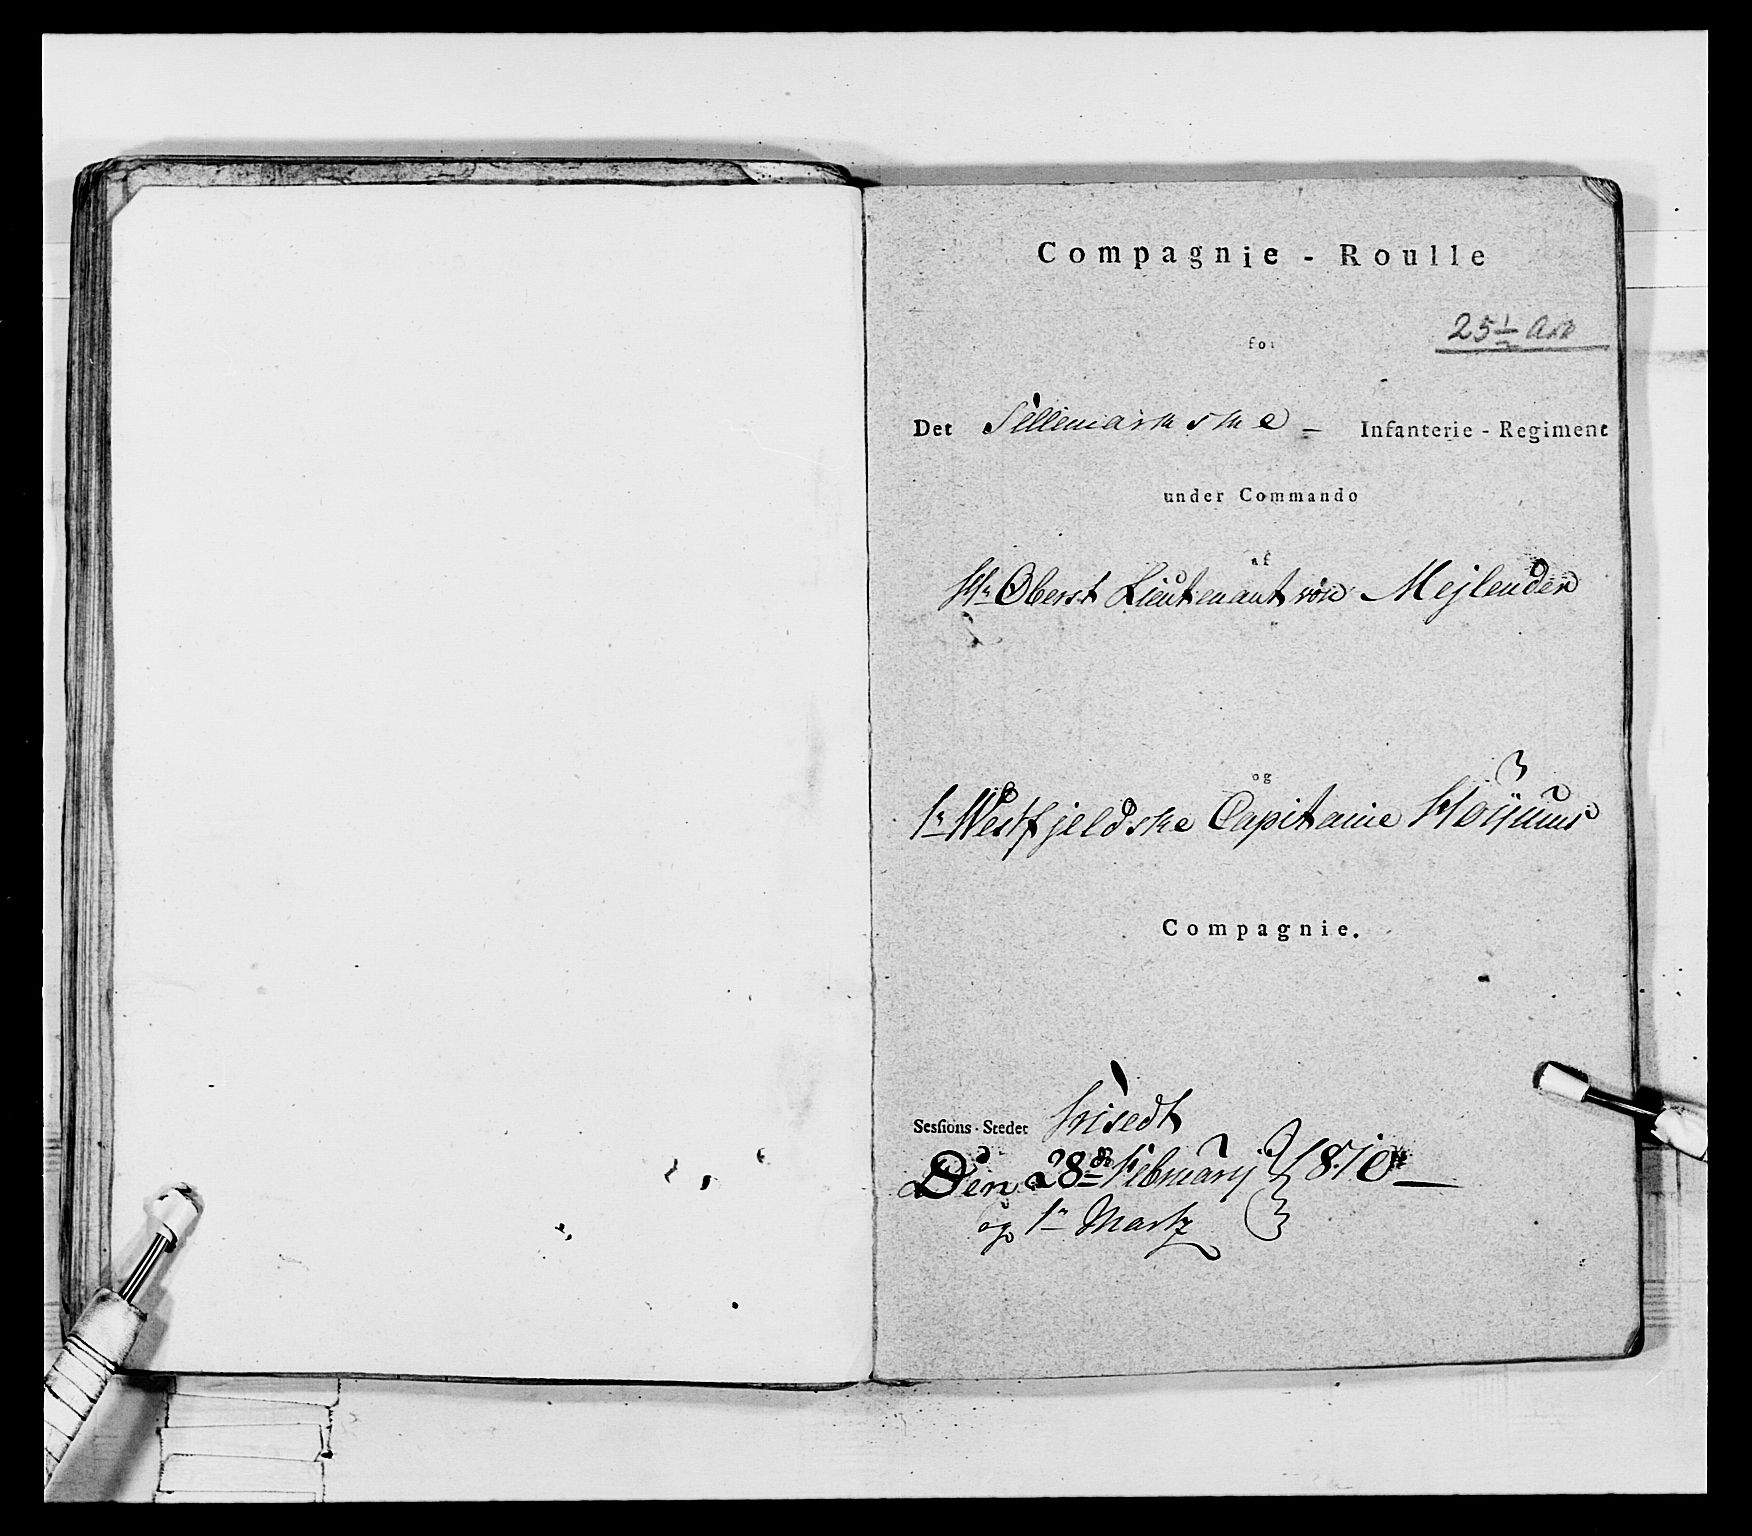 Compagnie - Roulle
25 1/2 Ark
for
Det Tellemarkske - Infanterie - Regiment
under Commando
af
Hr Oberst Lieutenant von Mejlender
og
1r Westfjeldske Capitaine
Compagnie.
Sessions-Stedet
Den 28de Februarij 1810
og 1r Martz